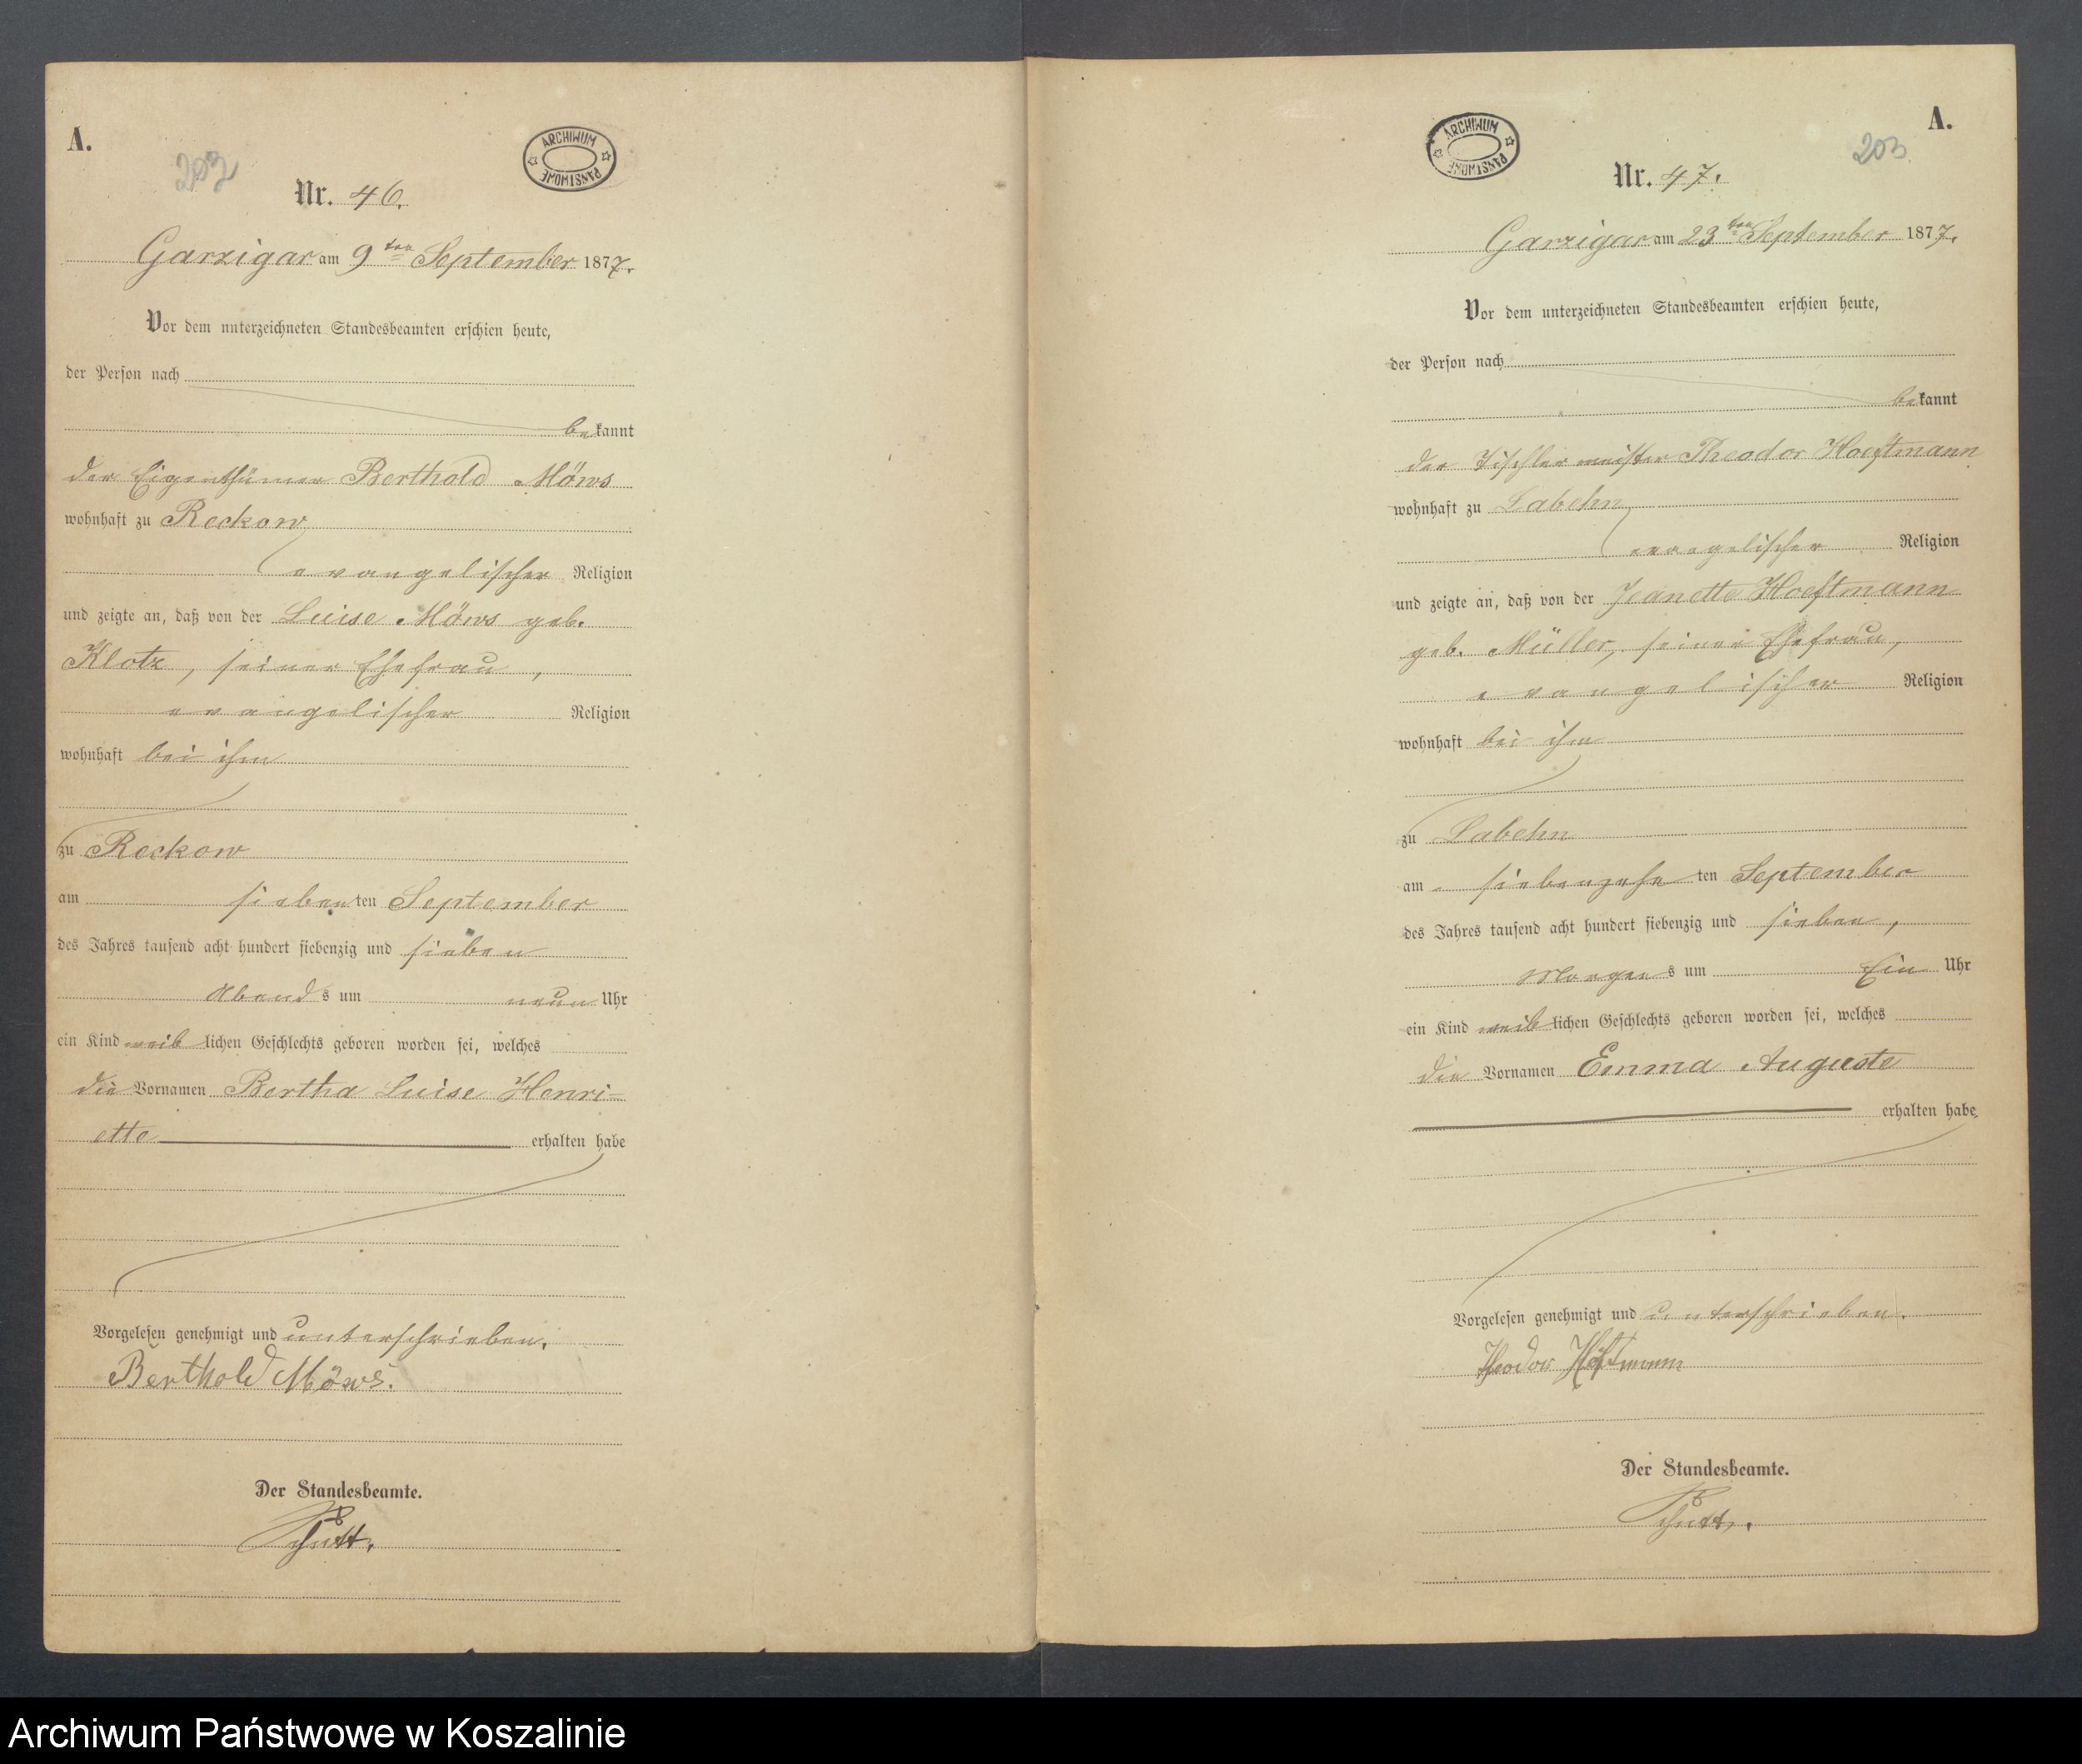 A.
202
ARCHIWUM PAŃSTWOWE
Nr. 46.
Garzigar am 9ten September 1877.
Vor dem unterzeichneten Standesbeamten erschien heute,
der Person nach
bekannt
der Eigenthümer Berthold Möws
wohnhaft zu Reckow
evangelischer Religion
und zeigte an, daß von der Luise Möws geb.
Klotz, seiner Ehefrau,
evangelischer Religion
wohnhaft bei ihm
zu Reckow
am siebenten September
des Jahres tausend acht hundert siebenzig und sieben
Abends um neun Uhr
ein Kind weiblichen Geschlechts geboren worden sei, welches
die Vornamen Bertha Luise Henri-
ette erhalten habe
Vorgelesen genehmigt und unterschrieben.
Berthold Möws.
Der Standesbeamte.
A.
203
ARCHIWUM PAŃSTWOWE
Nr. 47.
Garzigar am 23ten September 1877.
Vor dem unterzeichneten Standesbeamten erschien heute,
der Person nach
bekannt
der Tischlermeister Theodor Hoeftmann
wohnhaft zu Labehn
evangelischer Religion
und zeigte an, daß von der Jeanette Hoeftmann
geb. Müller, seiner Ehefrau,
evangelischer Religion
wohnhaft bei ihm
zu Labehn
am siebenzehnten September
des Jahres tausend acht hundert siebenzig und sieben,
Morgens um Ein Uhr
ein Kind weiblichen Geschlechts geboren worden sei, welches
die Vornamen Emma Auguste
erhalten habe
Vorgelesen genehmigt und unterschrieben.
Theodor Höftmann
Der Standesbeamte.
Archiwum Państwowe w Koszalinie